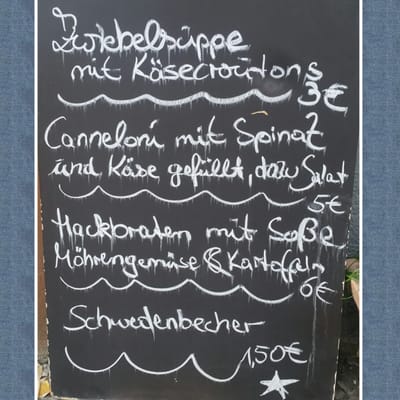 Zwiebelsuppe
mit Käsecroutons
3€
Canneloni mit Spinat
und Käse gefüllt, dazu Salat
5€
Hackbraten mit Soße
Möhrengemüse & Kartoffeln
6€
Schwedenbecher
1,50€